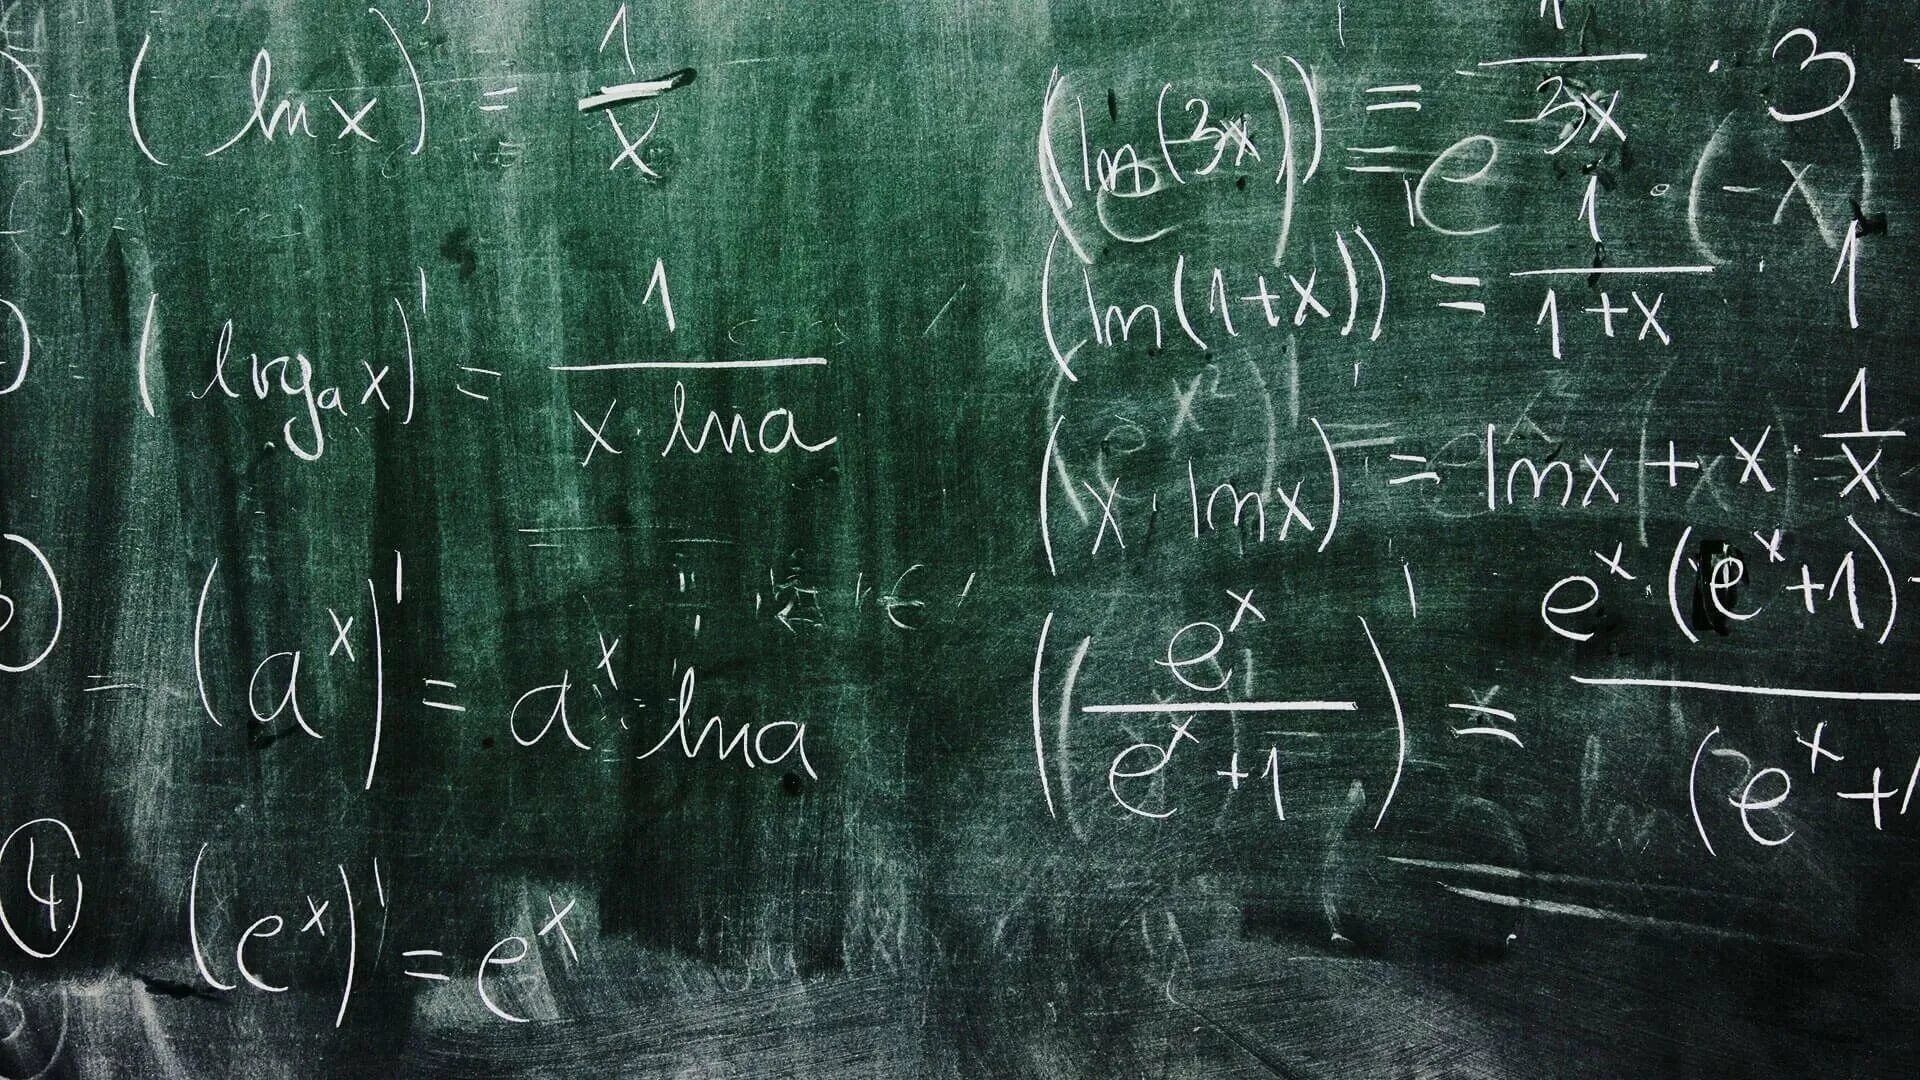 (ln x)' = 1/x
(log_a x)' = 1/(x · ln a)
(a^x)' = a^x · ln a
④ (e^x)' = e^x
(ln(3x))' = 1/(3x) · 3
(ln(1+x))' = 1/(1+x) · 1
(x · ln x)' = ln x + x · 1/x
(e^x/(e^x+1))' = e^x · (e^x+1) / (e^x+